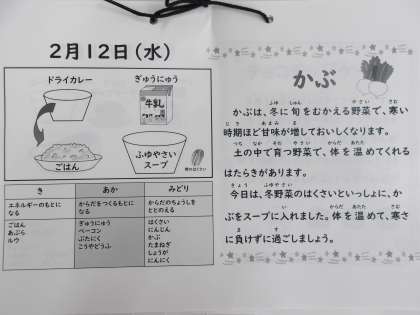 2月12日(水)
ドライカレー
ぎゅうにゅう
牛乳
ごはん
ふゆやさい
スープ
き
あか
みどり
エネルギーのもとに
なる
からだをつくるもとに
なる
からだのちょうしを
ととのえる
ごはん
あぶら
ルウ
ぎゅうにゅう
ベーコン
ぶたにく
こうやどうふ
はくさい
にんじん
かぶ
たまねぎ
しょうが
にんにく
かぶ
かぶは、冬に旬をむかえる野菜で、寒い
時期ほど甘味が増しておいしくなります。
土の中で育つ野菜で、体を温めてくれる
はたらきがあります。
今日は、冬野菜のはくさいといっしょに、か
ぶをスープに入れました。体を温めて、寒さ
に負けずに過ごしましょう。